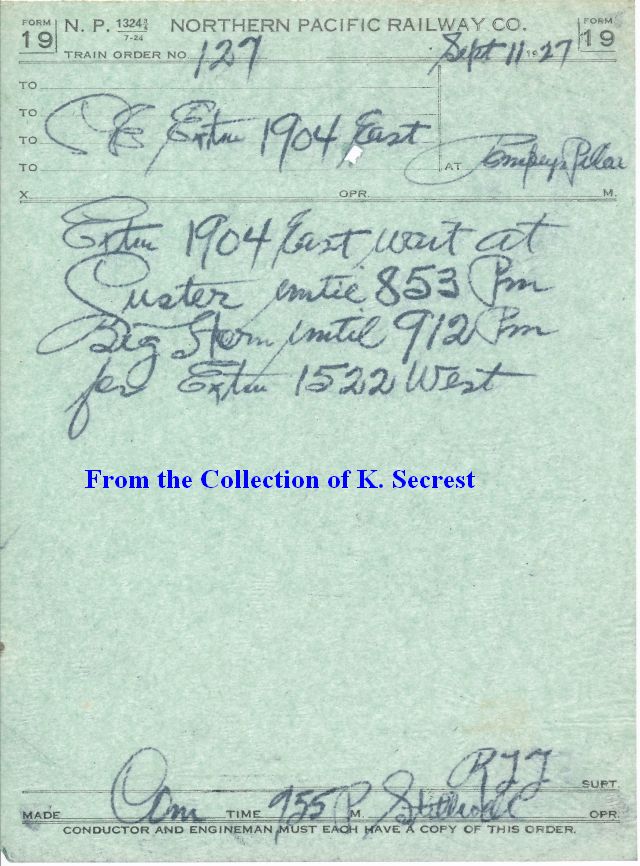 FORM 19 N. P. 1324½ 7-24 NORTHERN PACIFIC RAILWAY CO. FORM 19
TRAIN ORDER NO. 127 Sept 11 1927
TO
TO
TO C&E Extra 1904 East
TO AT Pompeys Pilar
X. OPR. M.
Extra 1904 East wait at
Custer until 853 Pm
Big Horn until 912 Pm
for Extra 1522 West
From the Collection of K. Secrest
SUPT.
MADE Com TIME 955 P M. Stillwell OPR.
CONDUCTOR AND ENGINEMAN MUST EACH HAVE A COPY OF THIS ORDER.